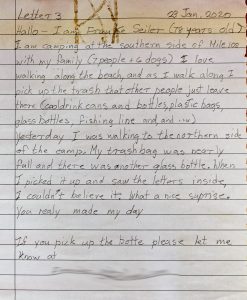 Letter 3 23 Jan, 2020
Hallo - I am Frauke Seiler (76 years old)
I am camping at the southern side of Mile 108
with my family (7 people + 6 dogs) I love
walking along the beach, and as I walk along I
pick up the trash that other people just leave
there (cooldrink cans and bottles, plastic bags,
glass bottles, fishing line and, and
Yesterday I was walking to the northern side
of the camp. My trash bag was nearly
full and there was another glass bottle. When
I picked it up and saw the letters inside,
I couldn't believe it. What a nice suprise.
You realy made my day
If you pick up the botte please let me
know at